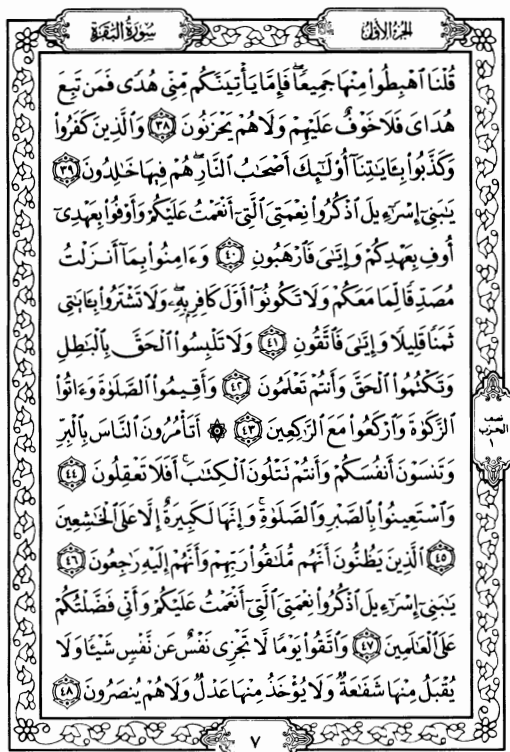 سُورَةُ البَقَرَةِ
الجُزْءُ الأَوَّلُ
قُلْنَا ٱهْبِطُوا۟ مِنْهَا جَمِيعًۭا ۖ فَإِمَّا يَأْتِيَنَّكُم مِّنِّى هُدًۭى فَمَن تَبِعَ
هُدَاىَ فَلَا خَوْفٌ عَلَيْهِمْ وَلَا هُمْ يَحْزَنُونَ ٣٨ وَٱلَّذِينَ كَفَرُوا۟
وَكَذَّبُوا۟ بِـَٔايَـٰتِنَآ أُو۟لَـٰٓئِكَ أَصْحَـٰبُ ٱلنَّارِ ۖ هُمْ فِيهَا خَـٰلِدُونَ ٣٩
يَـٰبَنِىٓ إِسْرَٰٓءِيلَ ٱذْكُرُوا۟ نِعْمَتِىَ ٱلَّتِىٓ أَنْعَمْتُ عَلَيْكُمْ وَأَوْفُوا۟ بِعَهْدِىٓ
أُوفِ بِعَهْدِكُمْ وَإِيَّـٰىَ فَٱرْهَبُونِ ٤٠ وَءَامِنُوا۟ بِمَآ أَنزَلْتُ
مُصَدِّقًۭا لِّمَا مَعَكُمْ وَلَا تَكُونُوٓا۟ أَوَّلَ كَافِرٍۭ بِهِۦ ۖ وَلَا تَشْتَرُوا۟ بِـَٔايَـٰتِى
ثَمَنًۭا قَلِيلًۭا وَإِيَّـٰىَ فَٱتَّقُونِ ٤١ وَلَا تَلْبِسُوا۟ ٱلْحَقَّ بِٱلْبَـٰطِلِ
وَتَكْتُمُوا۟ ٱلْحَقَّ وَأَنتُمْ تَعْلَمُونَ ٤٢ وَأَقِيمُوا۟ ٱلصَّلَوٰةَ وَءَاتُوا۟
ٱلزَّكَوٰةَ وَٱرْكَعُوا۟ مَعَ ٱلرَّٰكِعِينَ ٤٣ ۞ أَتَأْمُرُونَ ٱلنَّاسَ بِٱلْبِرِّ
نصف
الحزب
١
وَتَنسَوْنَ أَنفُسَكُمْ وَأَنتُمْ تَتْلُونَ ٱلْكِتَـٰبَ ۚ أَفَلَا تَعْقِلُونَ ٤٤
وَٱسْتَعِينُوا۟ بِٱلصَّبْرِ وَٱلصَّلَوٰةِ ۚ وَإِنَّهَا لَكَبِيرَةٌ إِلَّا عَلَى ٱلْخَـٰشِعِينَ
٤٥ ٱلَّذِينَ يَظُنُّونَ أَنَّهُم مُّلَـٰقُوا۟ رَبِّهِمْ وَأَنَّهُمْ إِلَيْهِ رَٰجِعُونَ ٤٦
يَـٰبَنِىٓ إِسْرَٰٓءِيلَ ٱذْكُرُوا۟ نِعْمَتِىَ ٱلَّتِىٓ أَنْعَمْتُ عَلَيْكُمْ وَأَنِّى فَضَّلْتُكُمْ
عَلَى ٱلْعَـٰلَمِينَ ٤٧ وَٱتَّقُوا۟ يَوْمًۭا لَّا تَجْزِى نَفْسٌ عَن نَّفْسٍۢ شَيْـًۭٔا وَلَا
يُقْبَلُ مِنْهَا شَفَـٰعَةٌۭ وَلَا يُؤْخَذُ مِنْهَا عَدْلٌۭ وَلَا هُمْ يُنصَرُونَ ٤٨
٧